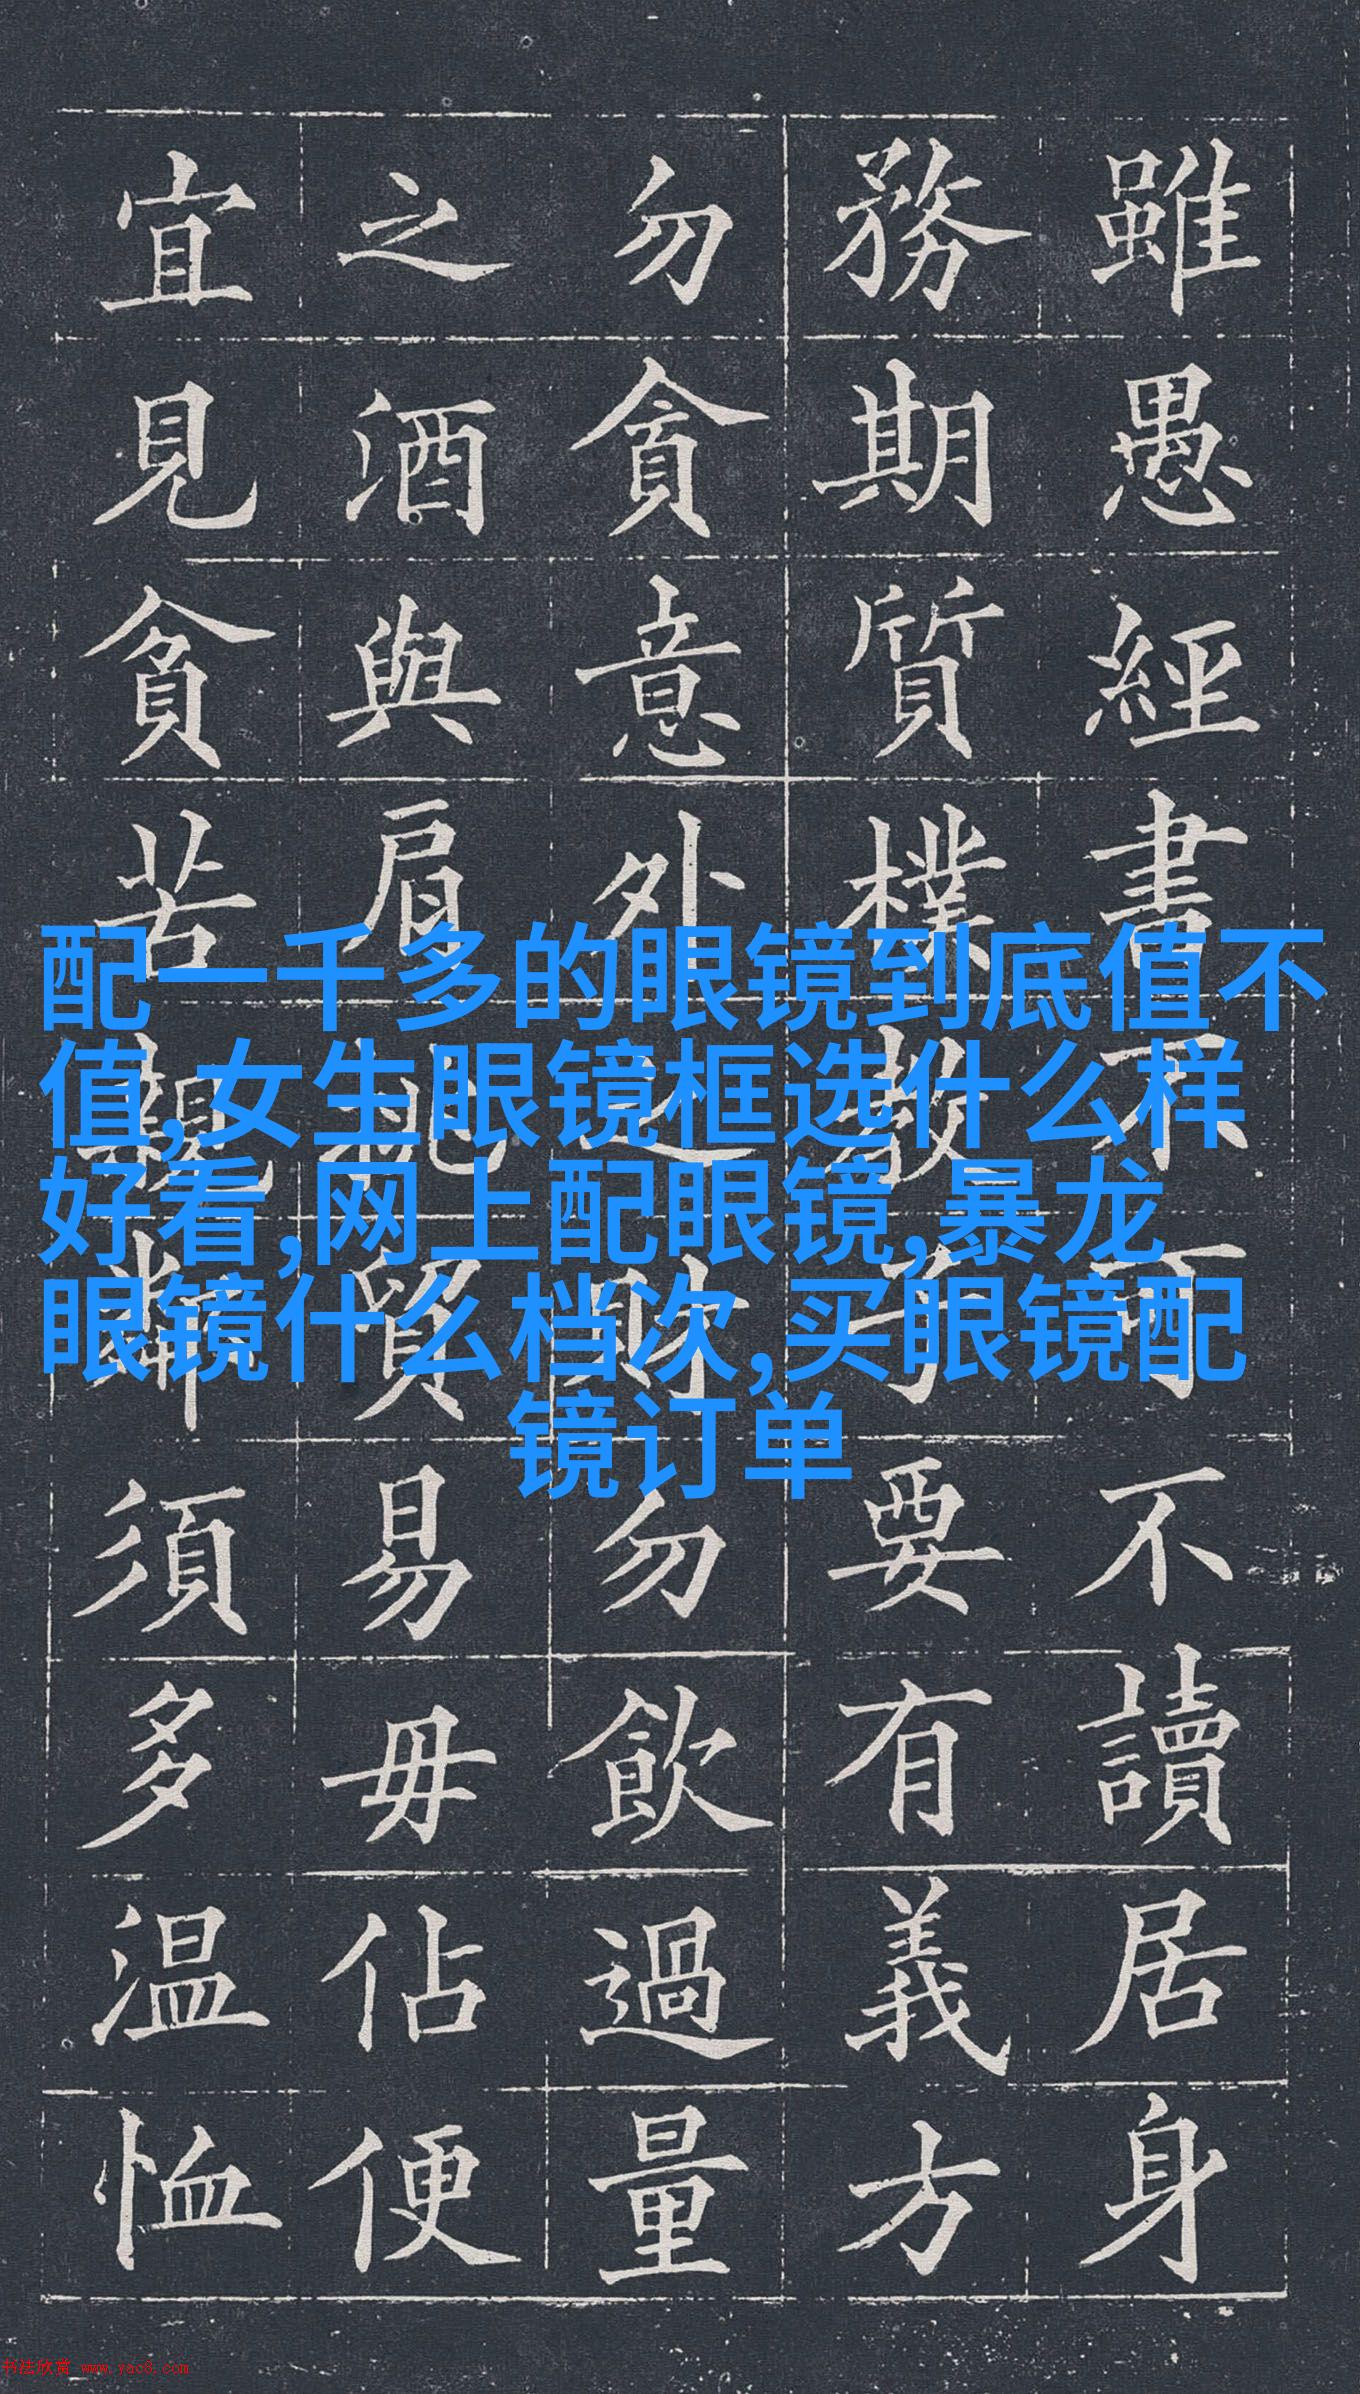 雖愚經書不可不讀居身
務期質樸教子要有義方
勿貪意外之財勿飲過量
之酒與肩挑貿易毋佔便
宜見貧苦親鄰須多温恤
配一千多的眼镜到底值不
值,女生眼镜框选什么样
好看,网上配眼镜,暴龙
眼镜什么档次,买眼镜配
镜订单
书法欣赏 www.yac8.com